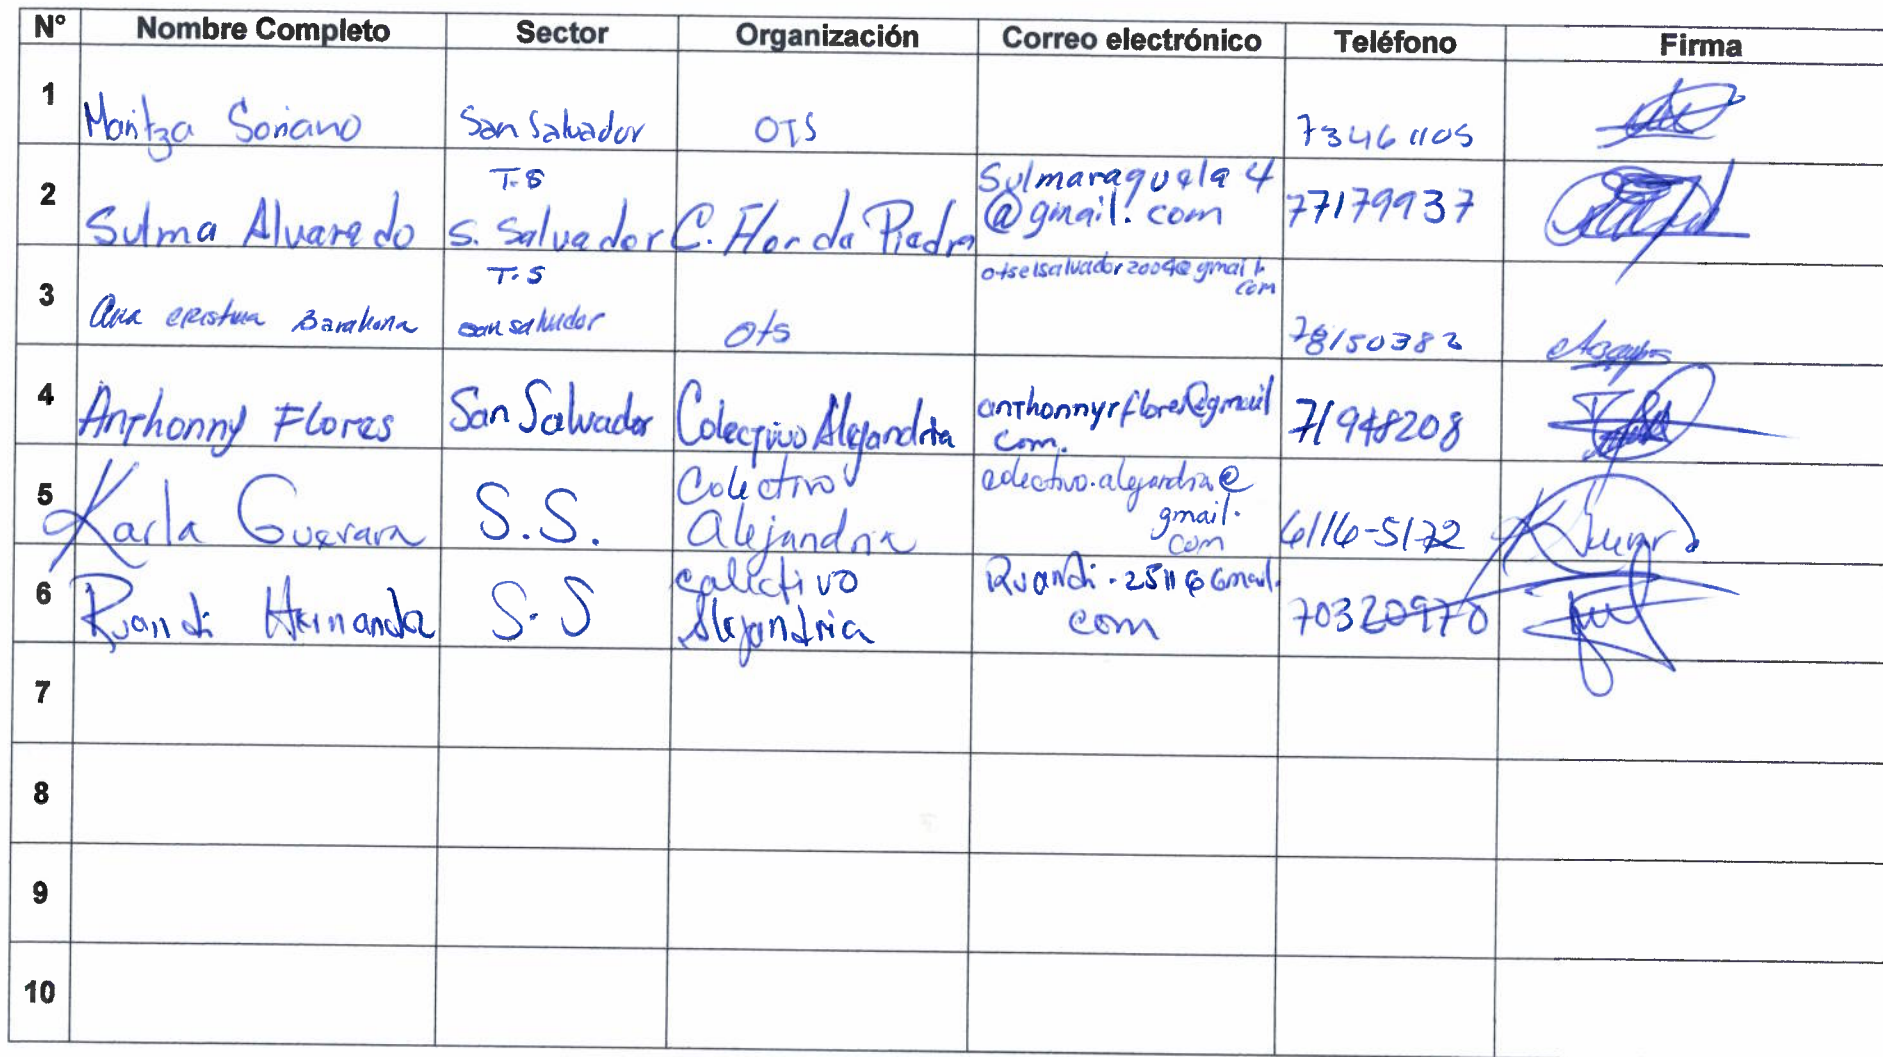 N° Nombre Completo Sector Organización Correo electrónico Teléfono Firma
1 Maritza Soriano San Salvador OTS 73461105
2 Sulma Alvarado T.S S. Salvador C. Flor de Piedra Sulmaraquela4
@gmail.com 77179937
3 Ana Cristina Barahona T.S San Salvador ots otselsalvador2004@gmail.
com 78150382
4 Anthonny Flores San Salvador Colectivo Alejandria anthonnyrflores@gmail
com. 71948208
5 Karla Guevara S.S. Colectivo
Alejandria colectivo.alejandria@
gmail.
com 6116-5172
6 Ruandi Hernandez S.S colectivo
Alejandria Ruandi.2511@Gmail.
com 70320970
7
8
9
10